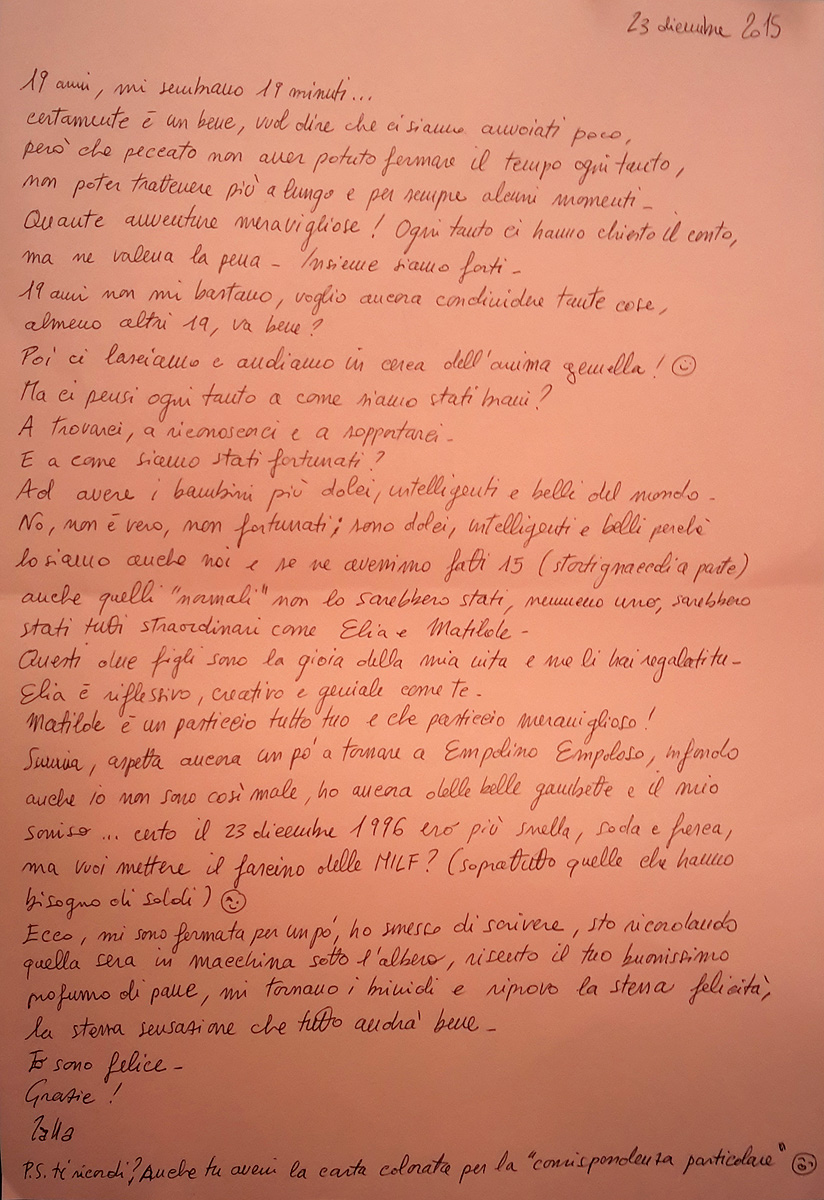 23 dicembre 2015
19 anni, mi sembrano 19 minuti...
certamente è un bene, vuol dire che ci siamo annoiati poco,
però che peccato non aver potuto fermare il tempo ogni tanto,
non poter trattenere più a lungo e per sempre alcuni momenti_
Quante avventure meravigliose! Ogni tanto ci hanno chiesto il conto,
ma ne valeva la pena_ Insieme siamo forti_
19 anni non mi bastano, voglio ancora condividere tante cose,
almeno altri 19, va bene?
Poi ci lasciamo e andiamo in cerca dell'anima gemella! ☺
Ma ci pensi ogni tanto a come siamo stati bravi?
A trovarci, a riconoscerci e a sopportarci_
E a come siamo stati fortunati?
Ad avere i bambini più dolci, intelligenti e belli del mondo_
No, non è vero, non fortunati; sono dolci, intelligenti e belli perchè
lo siamo anche noi e se ne avessimo fatti 15 (stortignaccoli a parte)
anche quelli "normali" non lo sarebbero stati, nemmeno uno, sarebbero
stati tutti straordinari come Elia e Matilde_
Questi due figli sono la gioia della mia vita e me li hai regalati tu_
Elia è riflessivo, creativo e geniale come te_
Matilde è un pasticcio tutto tuo e che pasticcio meraviglioso!
aspetta ancora un pò a tornare a Empolino Empoloso, infondo
anche io non sono così male, ho ancora delle belle gambette e il mio
sorriso... certo il 23 dicembre 1996 ero più snella, soda e fresca,
ma vuoi mettere il fascino delle MILF? (soprattutto quelle che hanno
bisogno di soldi) ☺
Ecco, mi sono fermata per un pò, ho smesso di scrivere, sto ricordando
quella sera in macchina sotto l'albero, risento il tuo buonissimo
profumo di pane, mi tornano i brividi e riprovo la stessa felicità,
la stessa sensazione che tutto andrà bene_
Io sono felice_
Grazie!
P.S. ti ricordi? Anche tu avevi la carta colorata per la "corrispondenza particolare" ☺